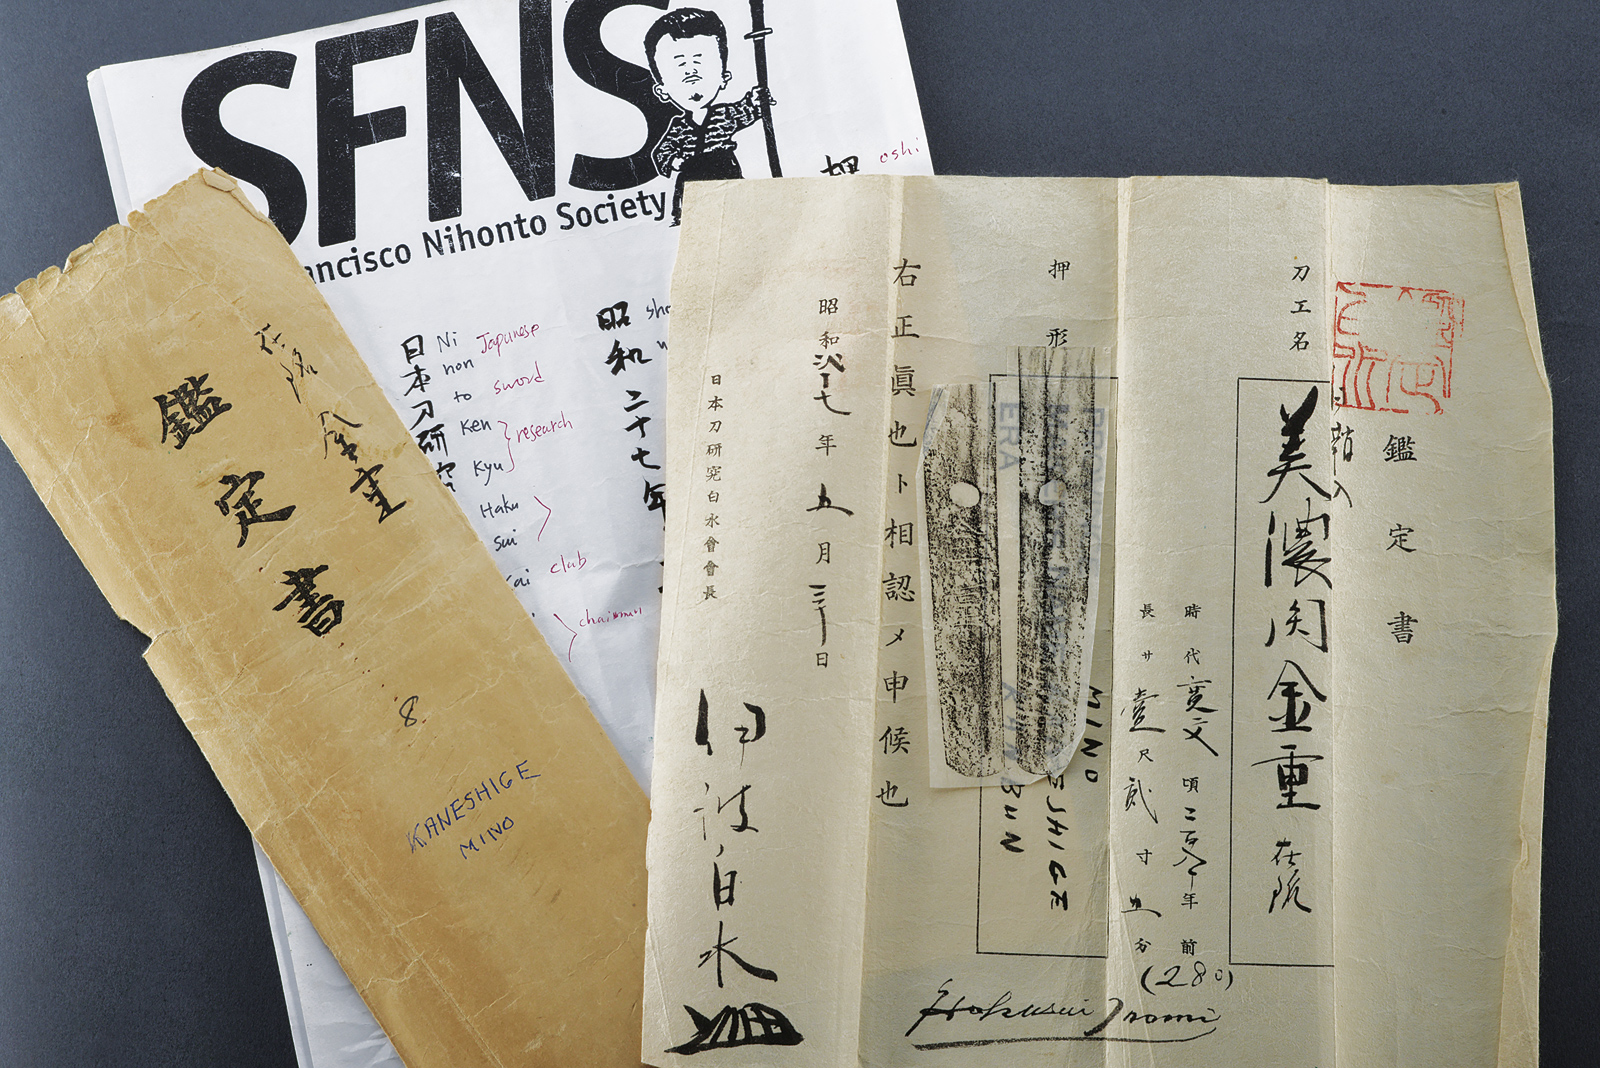 SFNS
ncisco Nihonto Society
押 oshi
日本刀研究
Ni
non
to
Ken
Kyu
Haku
Sui
Kai
Japanese
sword
research
club
chairman
昭和二十七年
鑑定書
金重
8
KANESHIGE
MINO
鑑定書
刀工名
美濃関金重
時代 寛文 頃 二百八十年前
(280)
長サ 壹尺貳寸五分
押形
MINO
ESHIGE
BUN
ERA
右正眞也ト相認メ申候也
昭和 弐十七年五月三十日
日本刀研究白水會會長
伊波白水
Hokusui Inami